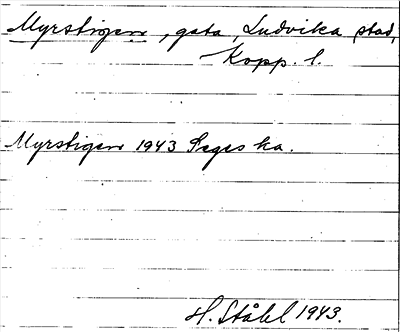 Myrstigen, gata, Ludvika stad,
Kopp. l.
Myrstigen 1943 Seges ka.
H. Ståhl 1943.